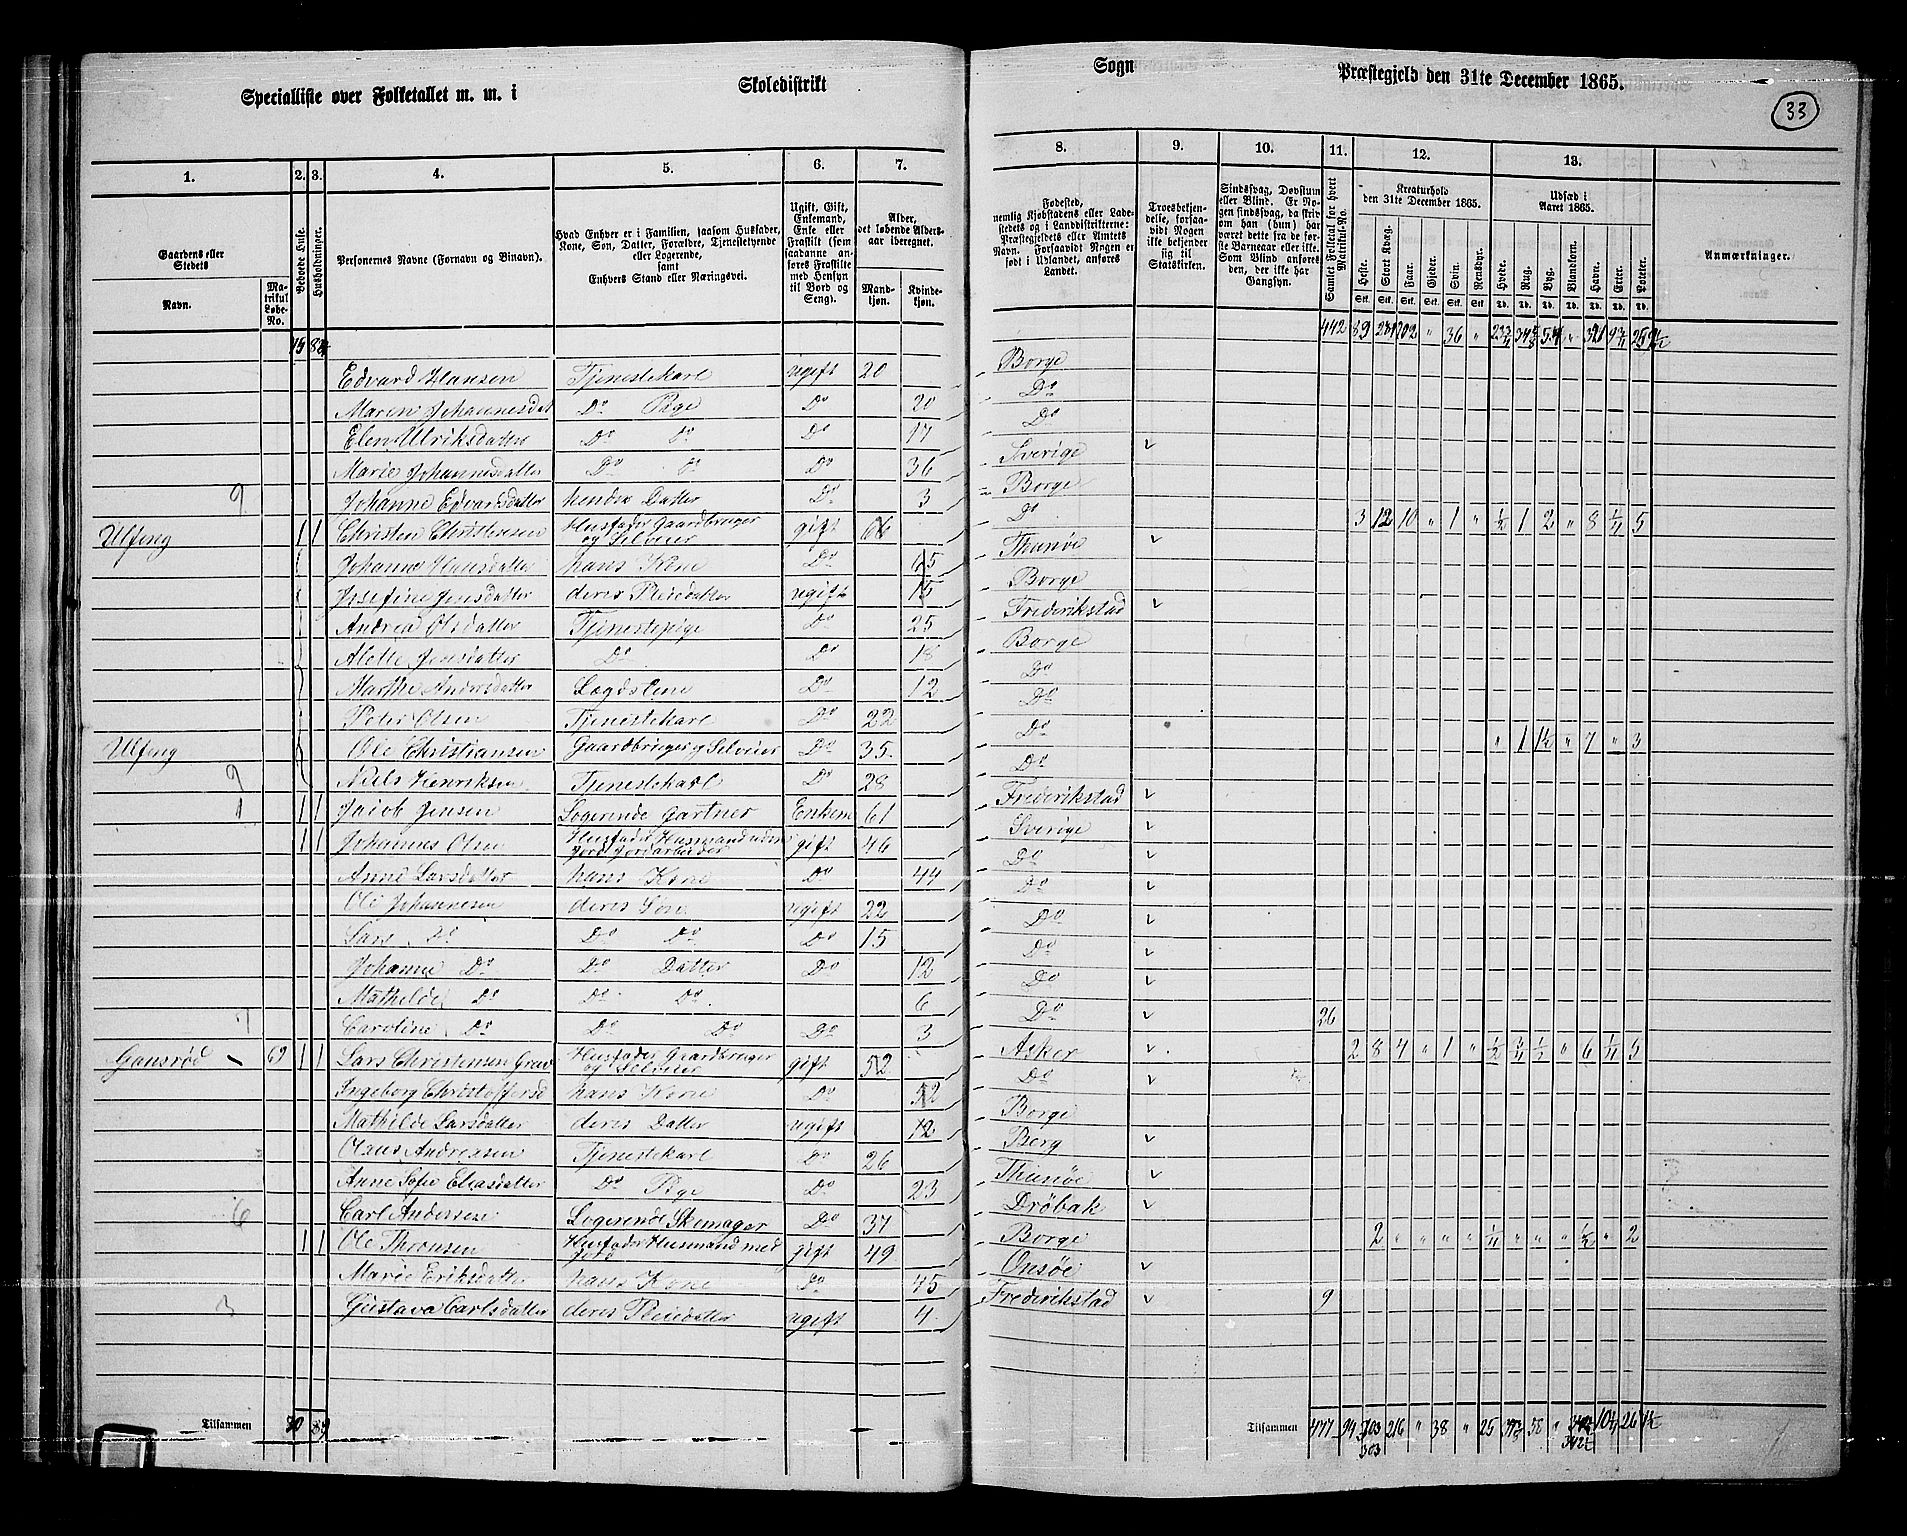 Specialliste over Folketallet m. m. i Skoledistrikt Sogn Præstegjeld den 31te December 1865.
33
1. 2. 3. 4. 5. 6. 7. 8. 9. 10. 11. 12. 13.
Gaardens eller Stedets
Navn.
Matrikul Løbe-No.
Beboede Huse.
Husholdninger.
Personernes Navne (Fornavn og Binavn).
Hvad Enhver er i Familien, saasom Husfader, Kone, Søn, Datter, Forældre, Tjenestetyende eller Logerende, samt Enhvers Stand eller Næringsvei.
Ugift, Gift, Enkemand, Enke eller Fraskilt (som saadanne anføres Fraskilte med Hensyn til Bord og Seng).
Alder, det løbende Aldersaar iberegnet.
Mandkjøn. Kvindekjøn.
Fødested, nemlig Kjøbstadens eller Ladestedets og i Landdistrikterne: Præstegjeldets eller Amtets Navn. Forsaavidt Nogen er født i Udlandet, anføres Landet.
Troesbekjendelse, forsaavidt Nogen ikke bekjender sig til Statskirken.
Sindssvag, Døvstum eller Blind. Er Nogen sindssvag, da skrives om han (hun) har været dette fra de første Barneaar eller ikke. Som Blind anføres den, der ikke har Gangsyn.
Samlet Folketal for hvert Matrikul-No.
Kreaturhold den 31te December 1865.
Heste. Stort Kvæg. Faar. Gjeder. Svin. Rensdyr.
Udsæd i Aaret 1865.
Hvede. Rug. Byg. Blandkorn. Havre. Erter. Poteter.
Anmærkninger.
442 89 102 " 36 "
Edvard Hansen Tjenestekarl ugift 20 Borge
Maren Johannesdat Do Pige Do 20 Do
Elen Ulriksdatter Do Do Do 17 Do
Marie Johannesdatter Do Do Do 36 Sverige
9 Johanne Edvardsdatter hendes Datter Do 3 Borge
Ulfeng 1 1 Christen Christensen Husfader Gaardbruger og Selveier gift 66 Do 3 12 10 " 1 " 1/2 1 2 " 8 1/4 5
Johanne Hansdatter hans Kone Do 65 Thunøe
Josefine Jensdatter deres Pleiedatter ugift 15 Borge
Andrea Olsdatter Tjenestepige Do 25 Frederikstad
Alette Jensdatter Do Do 18 Borge
Marthe Andersdatter Lægdslem Do 12 Do
Peter Olsen Tjenestekarl Do 22 Do
Ulfeng Ole Christiansen Gaardbruger og Selveier Do 35. Do " 1 1 1/2 " 7 " 3
9 Niels Henriksen Tjenestekarl Do 28 Do
1 1 1 Jacob Jensen Logerende Gartner Enkem 61 Frederikstad
1 1 Johannes Olsen Husfader Husmand uden Jord Jordarbeider gift 46 Sverige
Anne Larsdatter hans Kone Do 44 Do
Ole Johannesen deres Søn ugift 22 Do
Lars Do Do Do Do 15 Do
Johanne Do Do Datter Do 12 Do
Mathilde Do Do Do 6 Do
7 Caroline Do Do Do Do 3 Do 26
Gansrød 69 1 1 Lars Christensen Husfader Gaardbruger og Selveier gift 52 Asker 2 8 4 " 1 " 1/2 3/4 1/2 " 6 1/4 5
Ingeborg Christoffersd hans Kone Do 52 Do
Mathilde Larsdatter deres Datter ugift 12 Borge
Olaus Andreasen Tjenestekarl Do 26 Berg
Anne Sofie Eliasdatter Do Pige Do 23 Thunøe
6 Carl Andersen Logerende Skomager Do 37 Drøbak
1 1 Ole Thronsen Husfader Husmand med Jord gift 49 Borge 2 " " " " 1/4 " " " 1/2 " 2
Marie Eriksdatter hans Kone Do 45 Onsøe
3 Gustava Carlsdatter deres Pleiedatter ugift 4 Frederikstad 9
Tilsammen Tilsammen 477 94 303 216 " 38 " 25 58 "